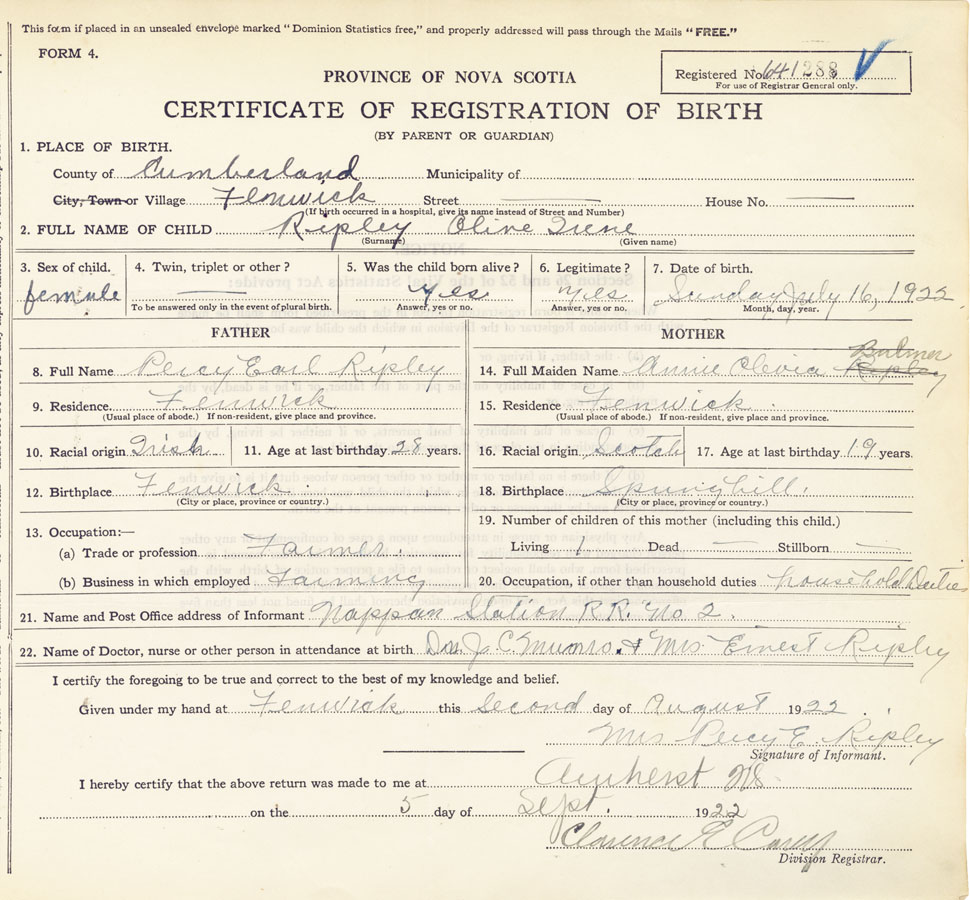 This form if placed in an unsealed envelope marked "Dominion Statistics free," and properly addressed will pass through the Mails "FREE."
FORM 4.
PROVINCE OF NOVA SCOTIA
Registered No. 641288
For use of Registrar General only.
CERTIFICATE OF REGISTRATION OF BIRTH
(BY PARENT OR GUARDIAN)
1. PLACE OF BIRTH.
County of Cumberland Municipality of
City, Town or Village Fenwick Street House No.
(If birth occurred in a hospital, give its name instead of Street and Number)
2. FULL NAME OF CHILD Ripley Olive Irene
(Surname) (Given name)
3. Sex of child. 4. Twin, triplet or other? 5. Was the child born alive? 6. Legitimate? 7. Date of birth.
female yes yes Sunday July 16, 1922
To be answered only in the event of plural birth. Answer, yes or no. Answer, yes or no. Month, day, year.
FATHER MOTHER
Bulmer
8. Full Name Percy Earl Ripley 14. Full Maiden Name Annie Clevia Ripley
9. Residence Fenwick 15. Residence Fenwick.
(Usual place of abode.) If non-resident, give place and province. (Usual place of abode.) If non-resident, give place and province.
10. Racial origin Irish 11. Age at last birthday 28 years. 16. Racial origin Scotch 17. Age at last birthday 19 years.
12. Birthplace Fenwick. 18. Birthplace Springhill.
(City or place, province or country.) (City or place, province or country.)
13. Occupation:— 19. Number of children of this mother (including this child.)
(a) Trade or profession Farmer. Living 1 Dead — Stillborn —
(b) Business in which employed Farming 20. Occupation, if other than household duties household Duties
21. Name and Post Office address of Informant Nappan Station R.R. No 2.
22. Name of Doctor, nurse or other person in attendance at birth Dr. J. C. Munro. & Mrs Ernest Ripley
I certify the foregoing to be true and correct to the best of my knowledge and belief.
Given under my hand at Fenwick this Second day of August 1922.
Mrs Percy E. Ripley
Signature of Informant.
I hereby certify that the above return was made to me at Amherst NS
on the 5 day of Sept. 1922
Clarence E
Division Registrar.